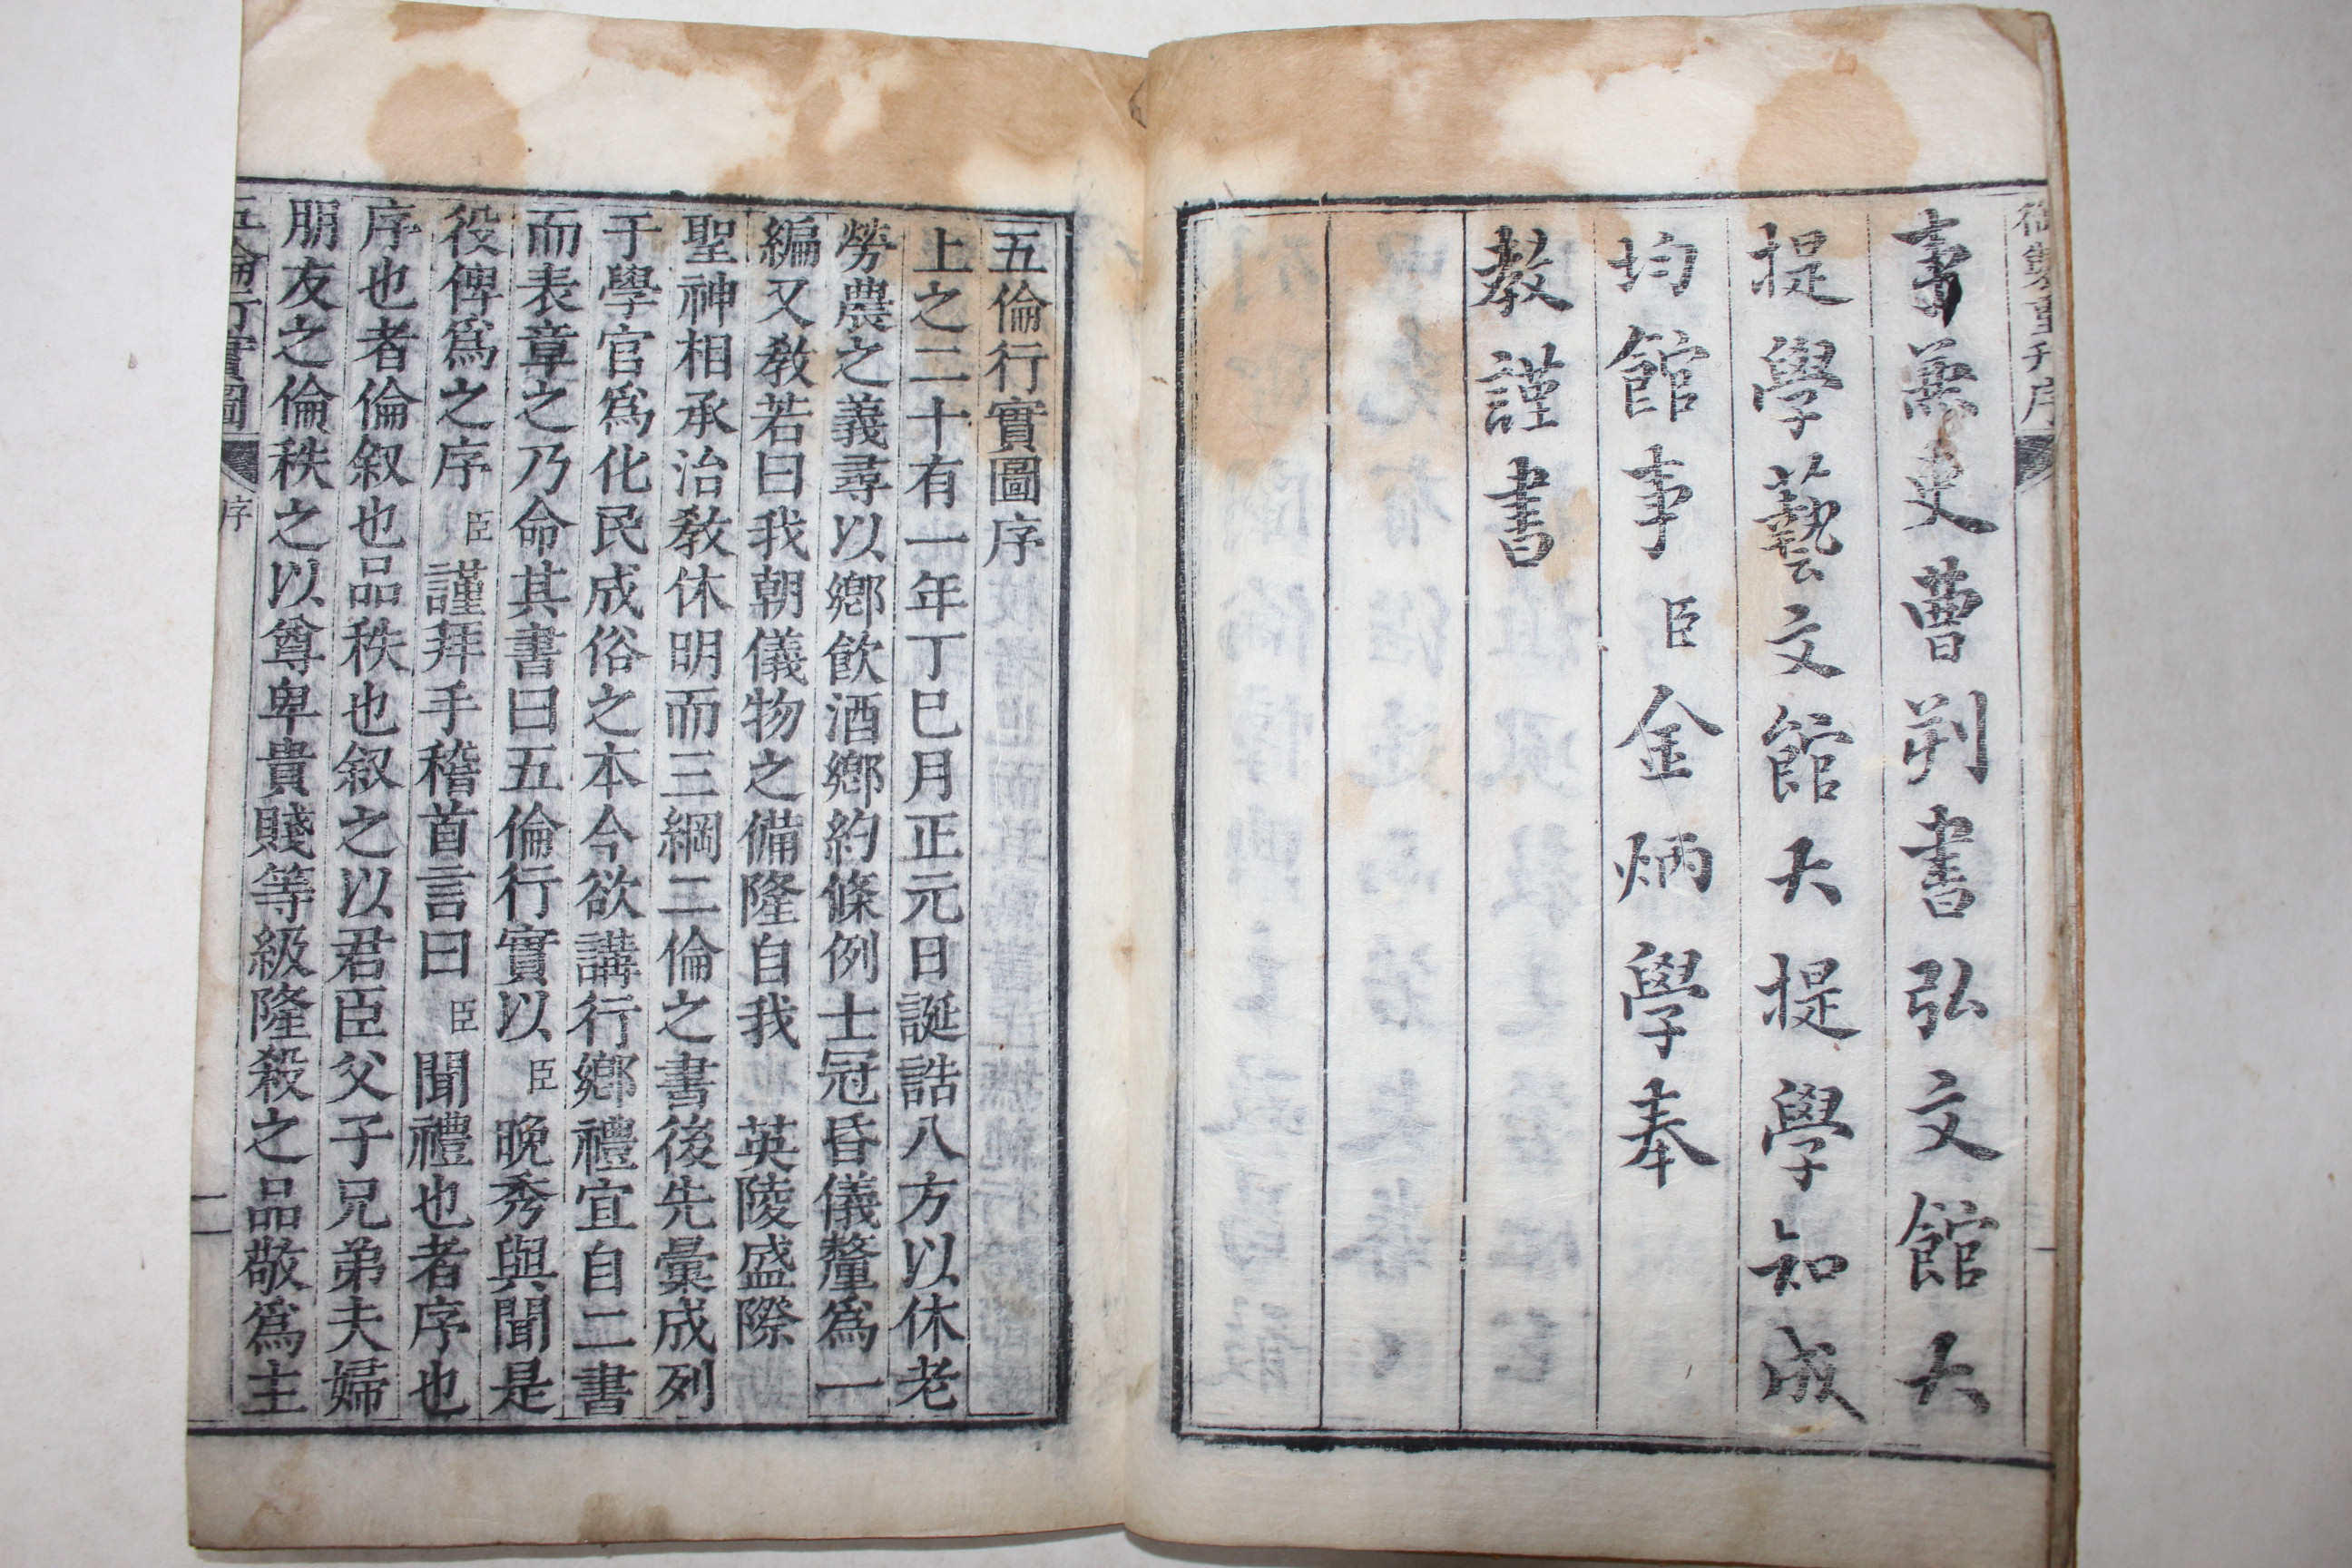 御製重刊序
事兼吏曹判書弘文館大
提學藝文館大提學知成
均館事臣金炳學奉
教謹書
五倫行實圖序
上之二十有一年丁巳月正元日誕誥八方以休老
勞農之義尋以鄕飮酒鄕約條例士冠昏儀釐爲一
編又敎若曰我朝儀物之備隆自我 英陵盛際
聖神相承治敎休明而三綱二倫之書後先彙成列
于學官爲化民成俗之本今欲講行鄕禮宜自二書
而表章之乃命其書曰五倫行實以臣晩秀與聞是
役俾爲之序臣謹拜手稽首言曰臣聞禮也者序也
序也者倫叙也品秩也叙之以君臣父子兄弟夫婦
朋友之倫秩之以尊卑貴賤等級隆殺之品敬爲主
五倫行實圖 序 一